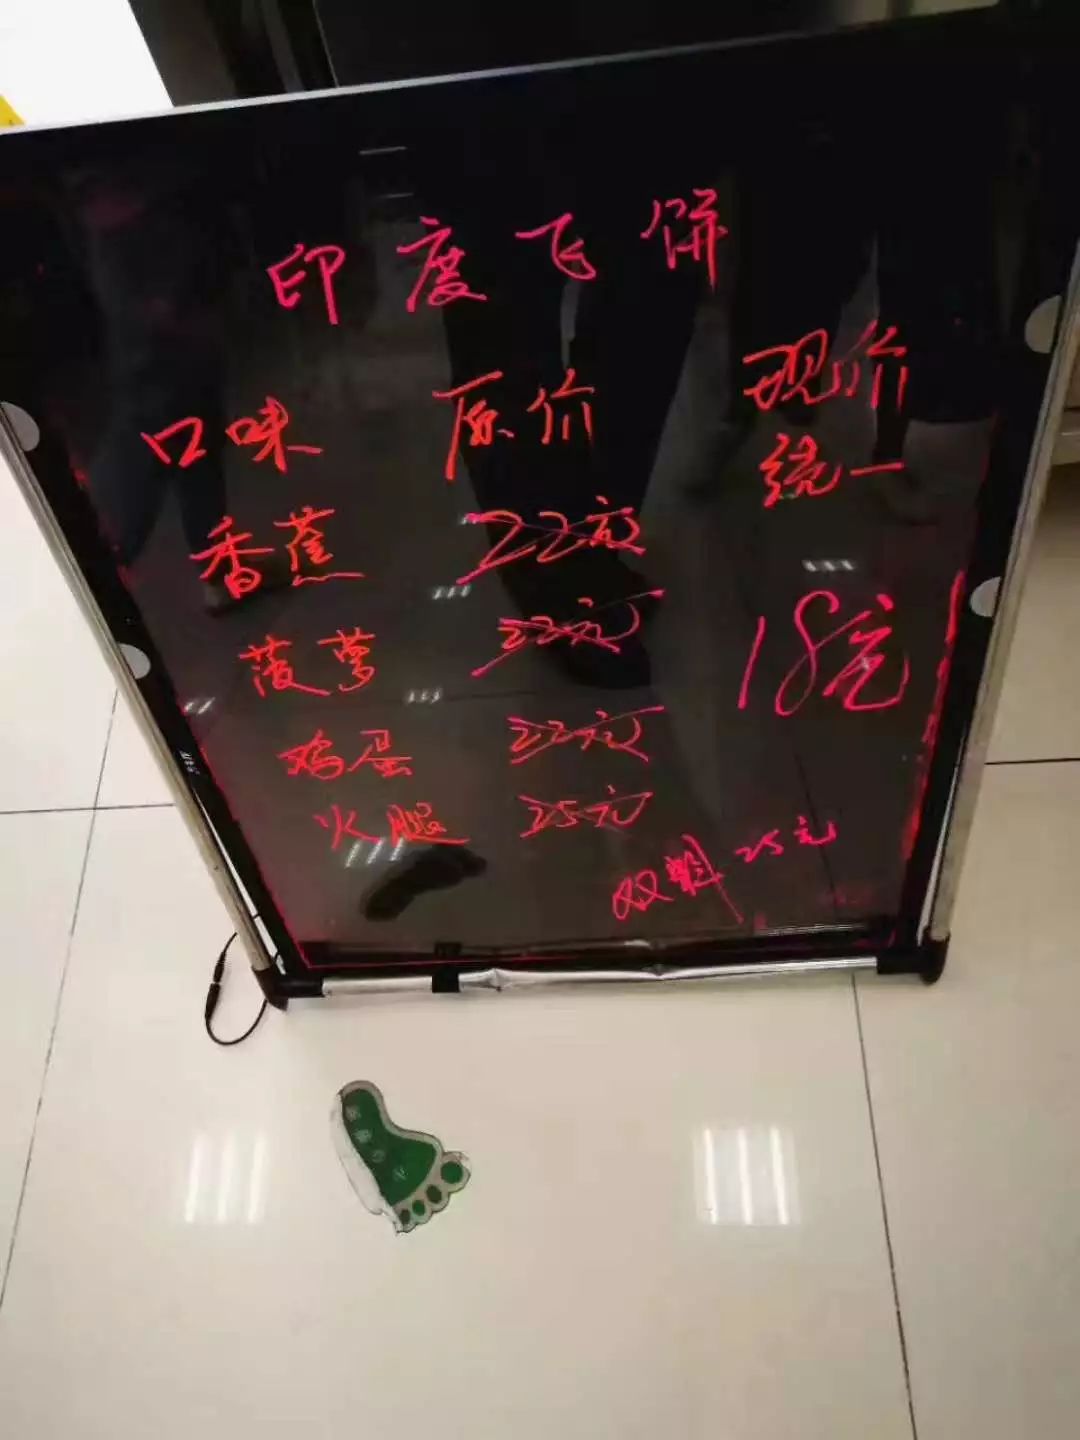 印度飞饼
口味 原价 现价
统一
香蕉 22元
菠萝 22元
18元
鸡蛋 22元
火腿 25元
双拼 25元